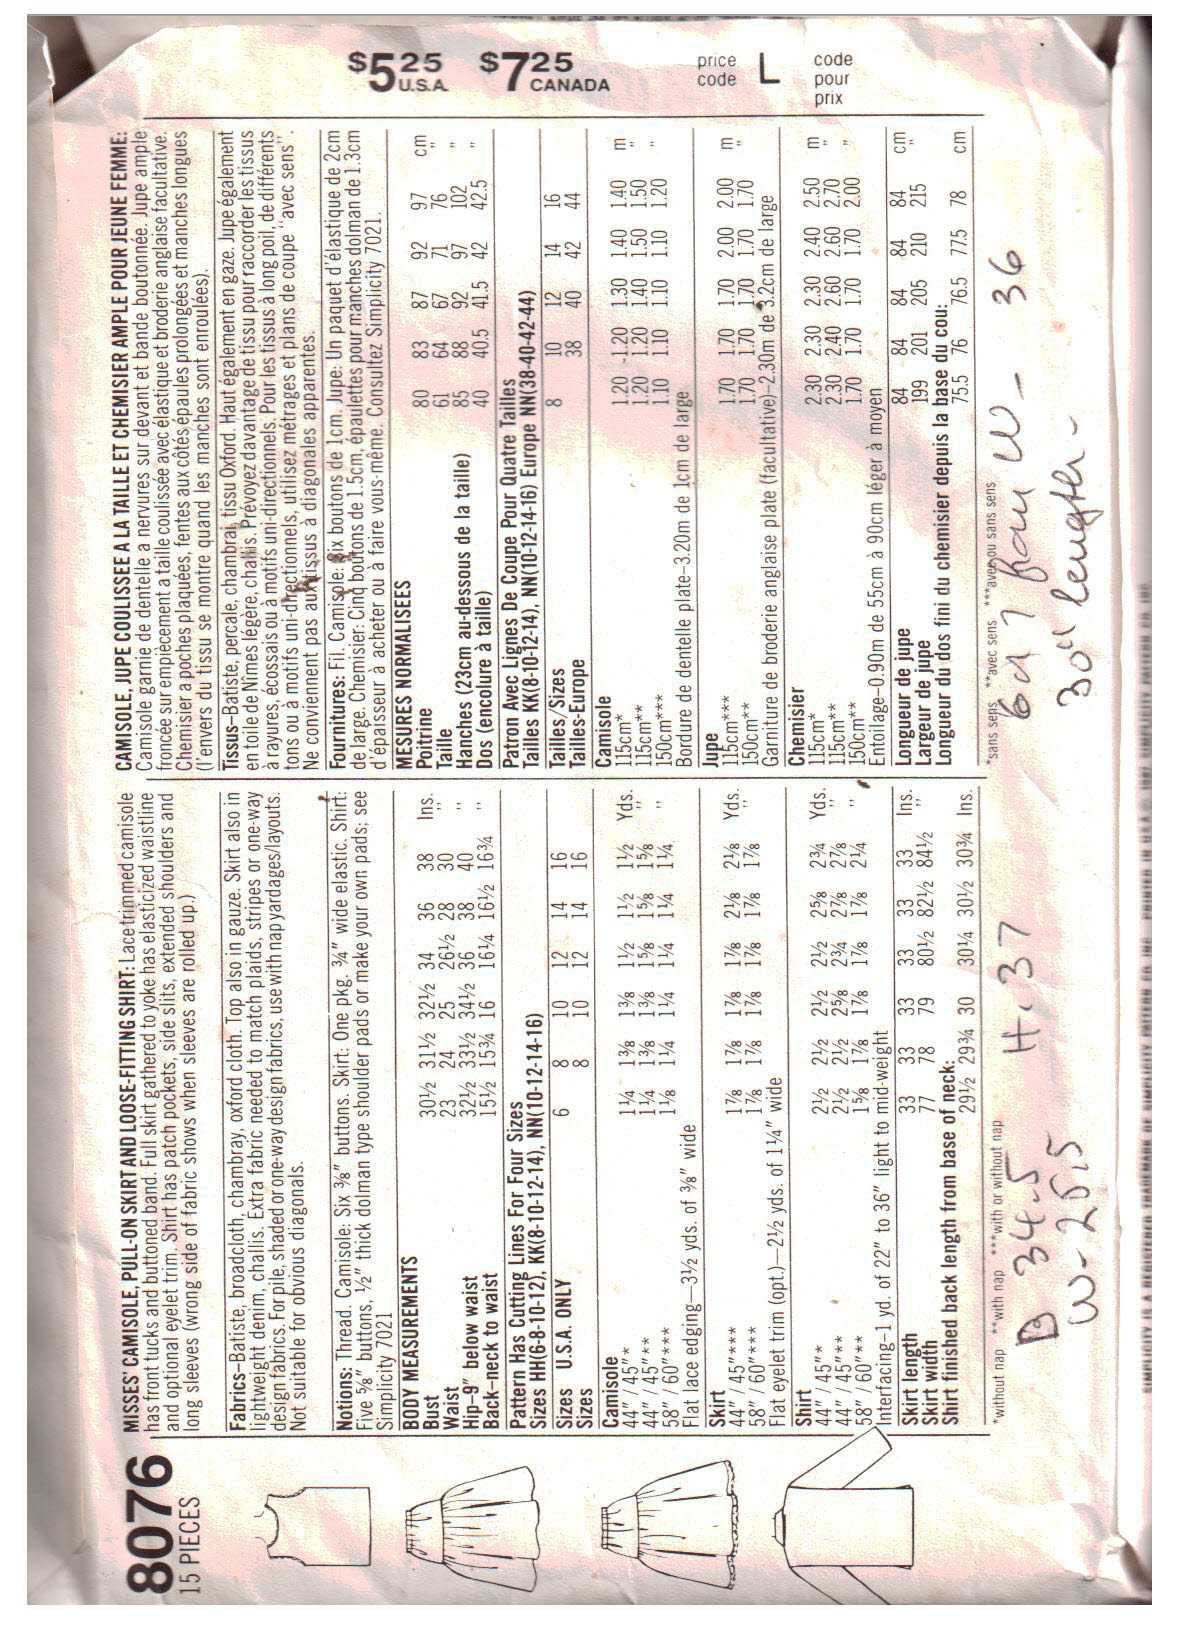 8076
15 PIECES
MISSES' CAMISOLE, PULL-ON SKIRT AND LOOSE-FITTING SHIRT: Lace trimmed camisole
has front tucks and buttoned band. Full skirt gathered to yoke has elasticized waistline
and optional eyelet trim. Shirt has patch pockets, side slits, extended shoulders and
long sleeves (wrong side of fabric shows when sleeves are rolled up.)
Fabrics–Batiste, broadcloth, chambray, oxford cloth. Top also in gauze. Skirt also in
lightweight denim, challis. Extra fabric needed to match plaids, stripes or one-way
design fabrics. For pile, shaded or one-way design fabrics, use with nap yardages/layouts.
Not suitable for obvious diagonals.
Notions: Thread. Camisole: Six ⅜" buttons. Skirt: One pkg. ¾" wide elastic. Shirt:
Five ⅝" buttons, ½" thick dolman type shoulder pads or make your own pads; see
Simplicity 7021
BODY MEASUREMENTS
Bust 30½ 31½ 32½ 34 36 38 Ins.
Waist 23 24 25 26½ 28 30 "
Hip–9" below waist 32½ 33½ 34½ 36 38 40 "
Back–neck to waist 15½ 15¾ 16 16¼ 16½ 16¾ "
Pattern Has Cutting Lines For Four Sizes
Sizes HH(6-8-10-12), KK(8-10-12-14), NN(10-12-14-16)
Sizes U.S.A. ONLY 6 8 10 12 14 16
Sizes 8 10 12 14 16
Camisole
44"/45"* 1¼ 1⅜ 1⅜ 1½ 1½ 1½ Yds.
44"/45"** 1¼ 1⅜ 1⅜ 1⅝ 1⅝ 1⅝ "
58"/60"*** 1⅛ 1¼ 1¼ 1¼ 1¼ 1¼ "
Flat lace edging–3½ yds. of ⅜" wide
Skirt
44"/45"*** 1⅞ 1⅞ 1⅞ 1⅞ 2⅛ 2⅛ Yds.
58"/60"*** 1⅞ 1⅞ 1⅞ 1⅞ 1⅞ 1⅞ "
Flat eyelet trim (opt.)–2½ yds. of 1¼" wide
Shirt
44"/45"* 2½ 2½ 2½ 2½ 2⅝ 2¾ Yds.
44"/45"** 2½ 2½ 2⅝ 2¾ 2⅞ 2⅞ "
58"/60"** 1⅝ 1⅞ 1⅞ 1⅞ 1⅞ 2¼ "
Interfacing–1 yd. of 22" to 36" light to mid-weight
Skirt length 33 33 33 33 33 33 Ins.
Skirt width 77 78 79 80½ 82½ 84½ "
Shirt finished back length from base of neck:
29½ 29¾ 30 30¼ 30½ 30¾ Ins.
*without nap **with nap ***with or without nap
B 34.5 H. 37
W-25.5
$5.25 U.S.A. $7.25 CANADA price code L code pour prix
CAMISOLE, JUPE COULISSEE A LA TAILLE ET CHEMISIER AMPLE POUR JEUNE FEMME:
Camisole garnie de dentelle a nervures sur devant et bande boutonnée. Jupe ample
froncée sur empiècement a taille coulissée avec élastique et broderie anglaise facultative.
Chemisier a poches plaquées, fentes aux côtés, épaules prolongées et manches longues
(l'envers du tissu se montre quand les manches sont enroulées).
Tissus–Batiste, percale, chambrai, tissu Oxford. Haut également en gaze. Jupe également
en toile de Nîmes légère, challis. Prévoyez davantage de tissu pour raccorder les tissus
à rayures, écossais ou à motifs uni-directionnels. Pour les tissus à long poil, de différents
tons ou à motifs uni-directionnels, utilisez métrages et plans de coupe "avec sens".
Ne conviennent pas aux tissus à diagonales apparentes.
Fournitures: Fil. Camisole: Six boutons de 1cm. Jupe: Un paquet d'élastique de 2cm
de large. Chemisier: Cinq boutons de 1.5cm, épaulettes pour manches dolman de 1.3cm
d'épaisseur à acheter ou à faire vous-même. Consultez Simplicity 7021.
MESURES NORMALISEES
Poitrine 80 83 87 92 97 cm
Taille 61 64 67 71 76 "
Hanches (23cm au-dessous de la taille) 85 88 92 97 102 "
Dos (encolure à taille) 40 40.5 41.5 42 42.5 "
Patron Avec Lignes De Coupe Pour Quatre Tailles
Tailles KK(8-10-12-14), NN(10-12-14-16) Europe NN(38-40-42-44)
Tailles/Sizes 8 10 12 14 16
Tailles-Europe 38 40 42 44
Camisole
115cm* 1.20 1.20 1.30 1.40 1.40 m
115cm** 1.20 1.20 1.40 1.50 1.50 "
150cm*** 1.10 1.10 1.10 1.10 1.20 "
Bordure de dentelle plate–3.20m de 1cm de large
Jupe
115cm*** 1.70 1.70 1.70 2.00 2.00 m
150cm** 1.70 1.70 1.70 1.70 1.70 "
Garniture de broderie anglaise plate (facultative)–2.30m de 3.2cm de large
Chemisier
115cm* 2.30 2.30 2.30 2.40 2.50 m
115cm** 2.30 2.40 2.60 2.60 2.70 "
150cm** 1.70 1.70 1.70 1.70 2.00 "
Entoilage–0.90m de 55cm à 90cm léger à moyen
Longueur de jupe 84 84 84 84 84 cm
Largeur de jupe 199 201 205 210 215 "
Longueur du dos fini du chemisier depuis la base du cou:
75.5 76 76.5 77.5 78 cm
*sans sens **avec sens ***avec ou sans sens
36
30" length
SIMPLICITY IS A REGISTERED TRADEMARK OF SIMPLICITY PATTERN CO. INC. PRINTED IN U.S.A.